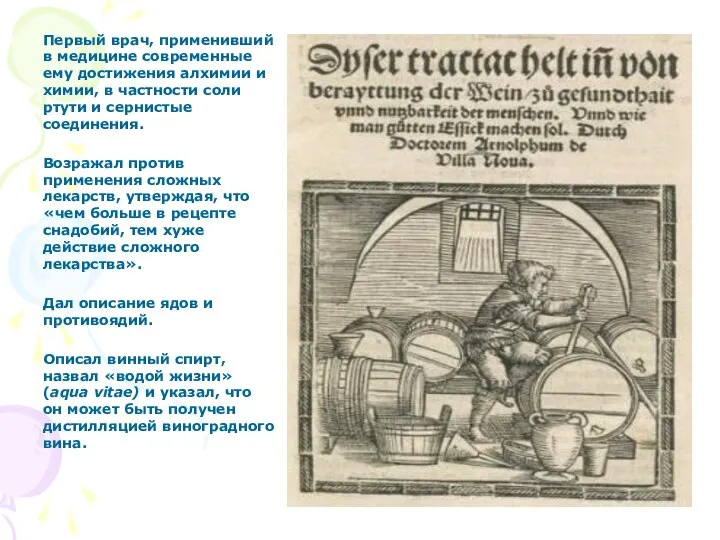 Первый врач, применивший
в медицине современные
ему достижения алхимии и
химии, в частности соли
ртути и сернистые
соединения.
Возражал против
применения сложных
лекарств, утверждая, что
«чем больше в рецепте
снадобий, тем хуже
действие сложного
лекарства».
Дал описание ядов и
противоядий.
Описал винный спирт,
назвал «водой жизни»
(aqua vitae) и указал, что
он может быть получен
дистилляцией виноградного
вина.
Dyser tractat helt iñ von
berayttung der Wein/zů gesundthait
vnnd nutzbarkeit der menschen. Vnnd wie
man gůtten Essick machen sol. Durch
Doctorem Arnolphum de
Villa Noua.